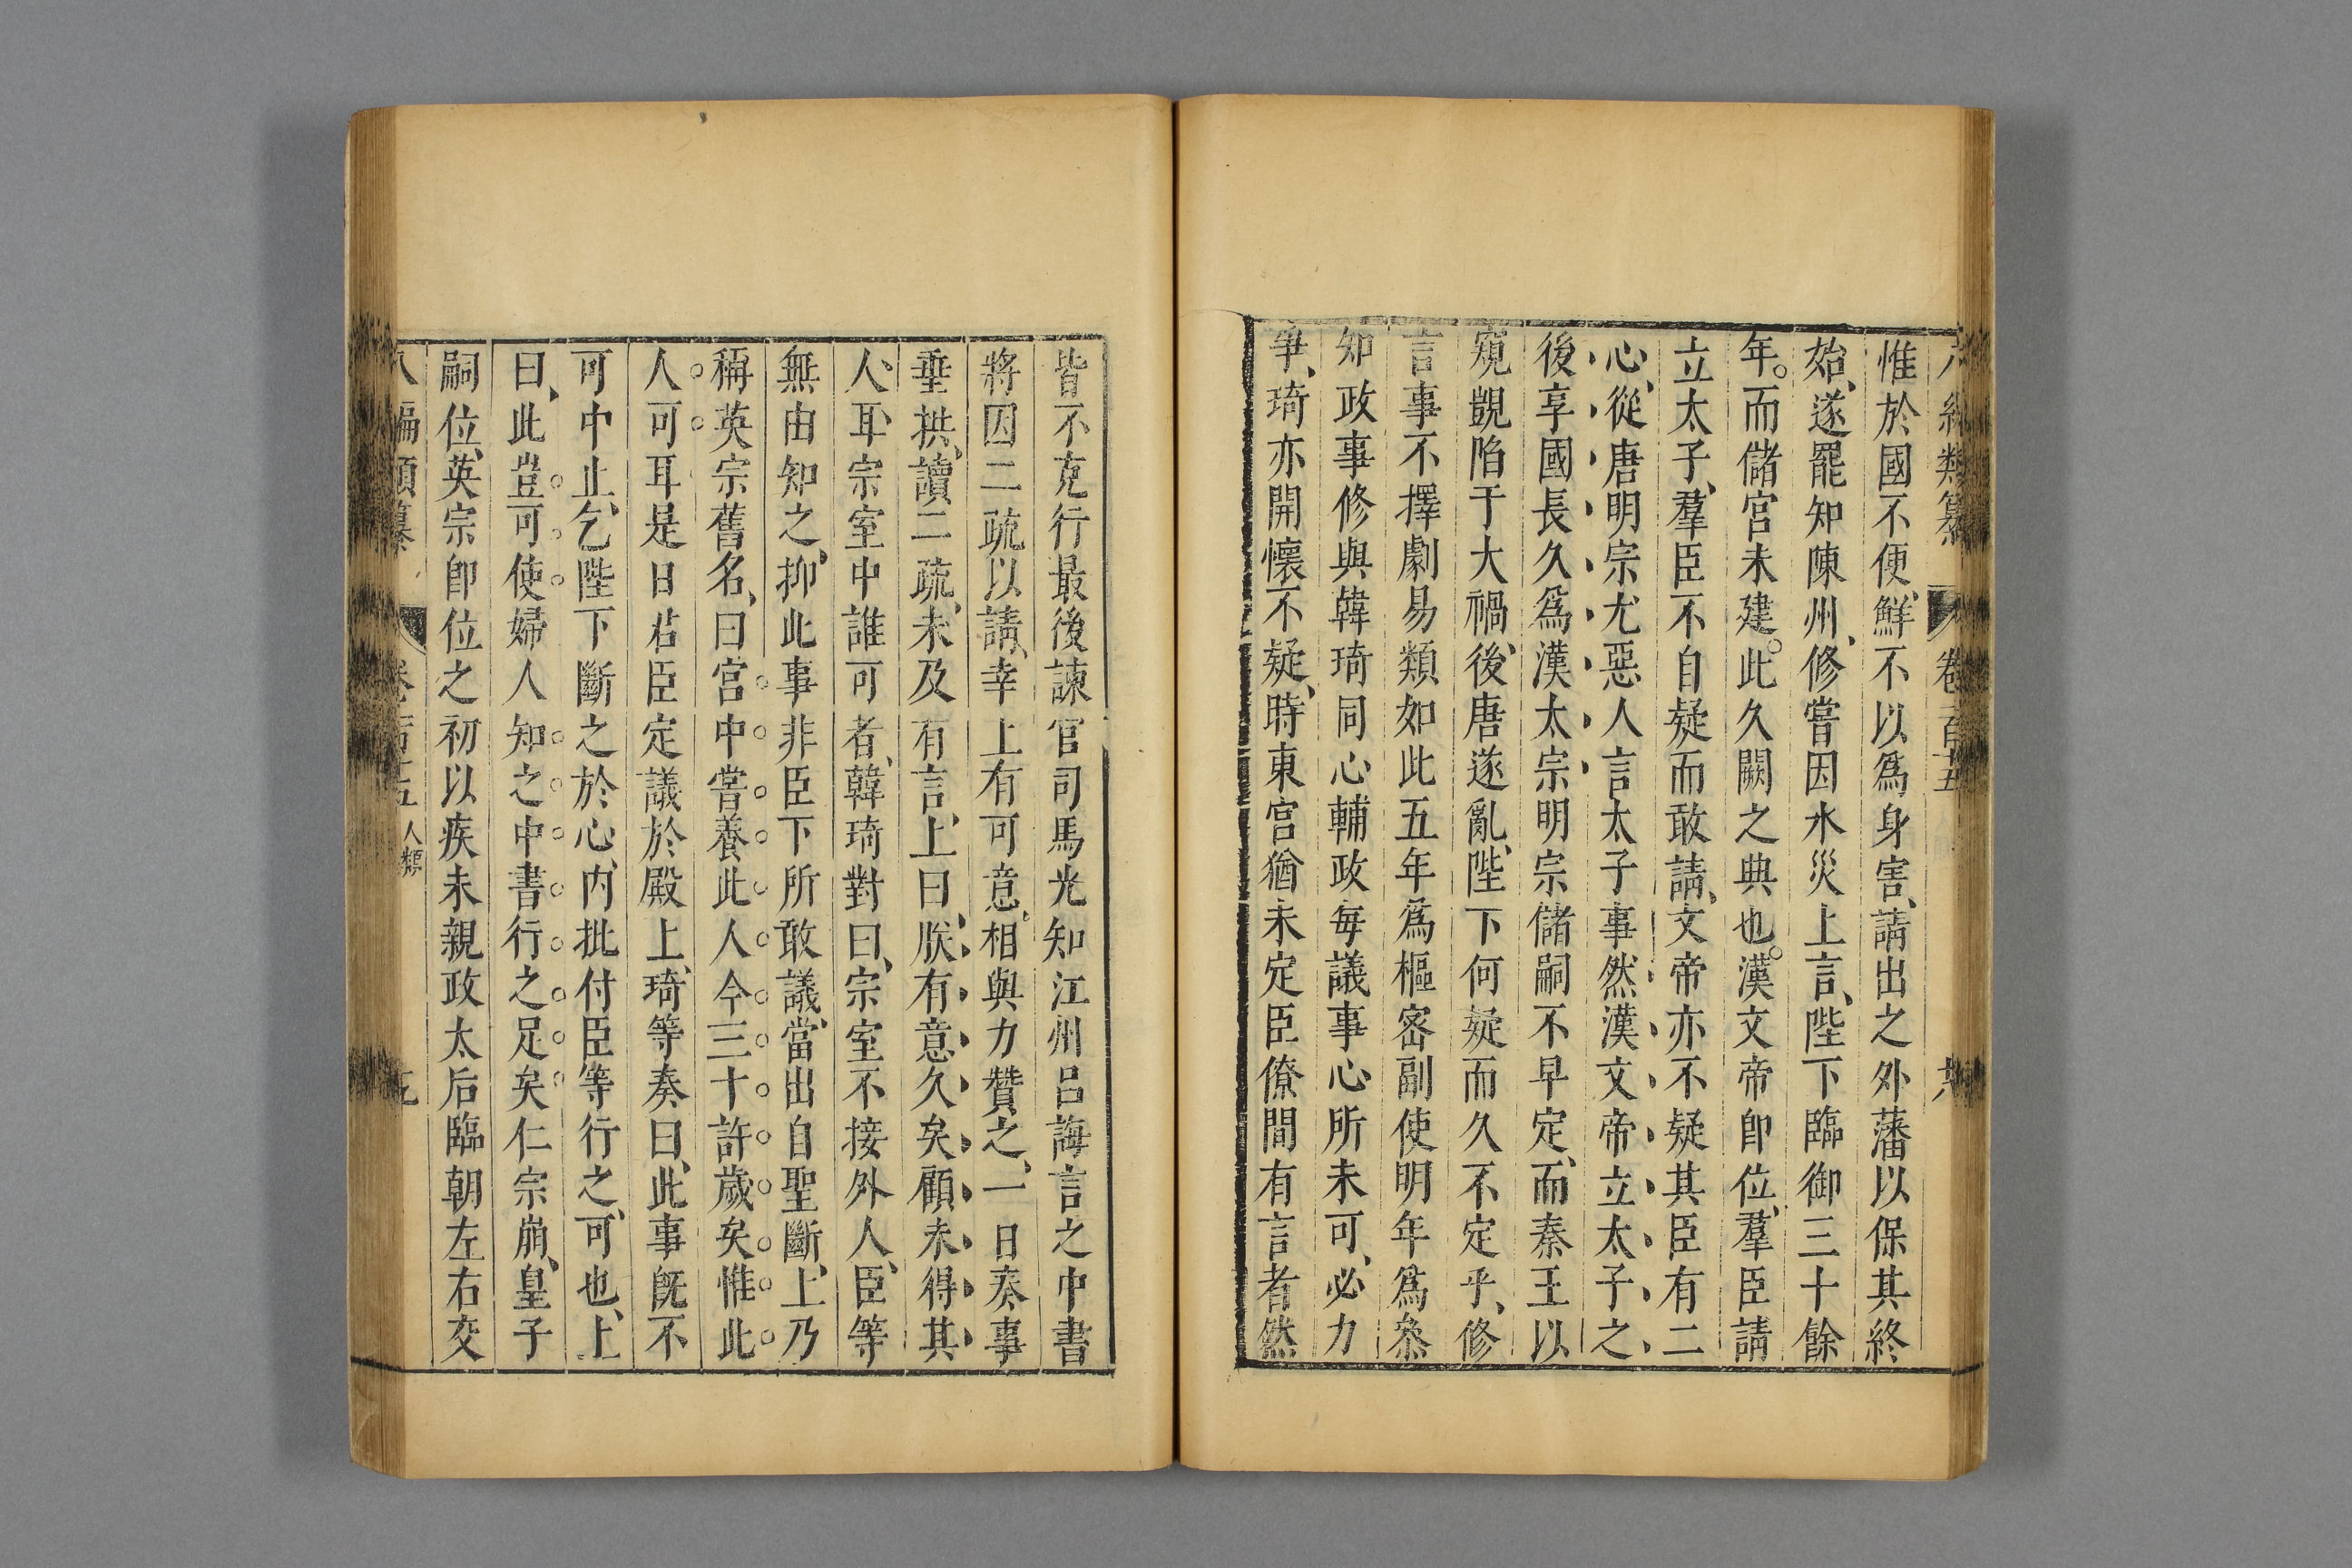 編類纂 卷一百十五
惟於國不便、鮮不以爲身害、請出之外藩以保其終
始、遂罷知陳州、修嘗因水災上言、陛下臨御三十餘
年。而儲宮未建。此久闕之典也。漢文帝卽位、羣臣請
立太子、羣臣不自疑而敢請、文帝亦不疑其臣有二
心、從唐明宗尤惡人言太子事然漢文帝立太子之
後享國長久爲漢太宗明宗儲嗣不早定、而秦王以
窺覬陷于大禍、後唐遂亂、陛下何疑而久不定乎、修
言事不擇劇易類如此五年爲樞密副使明年爲叅
知政事修與韓琦同心輔政每議事心所未可、必力
爭、琦亦開懷不疑、時東宮猶未定臣僚間有言者然
皆不克行最後諫官司馬光知江州呂誨言之中書
將因二疏以請、幸上有可意、相與力贊之、一日奏事
垂拱、讀二疏、未及有言、上曰、朕有意久矣顧未得其
人、耳宗室中誰可者、韓琦對曰、宗室不接外人、臣等
無由知之、抑此事非臣下所敢議、當出自聖斷、上乃
稱英宗舊名、曰宮中嘗養此人今三十許歲矣惟此
人可耳是日君臣定議於殿上、琦等奏曰、此事旣不
可中止、乞陛下斷之於心、內批付臣等行之、可也、上
曰、此豈可使婦人知之中書行之足矣仁宗崩、皇子
嗣位、英宗卽位之初以疾未親政太后臨朝左右交
八編類纂 卷一百十五 人類